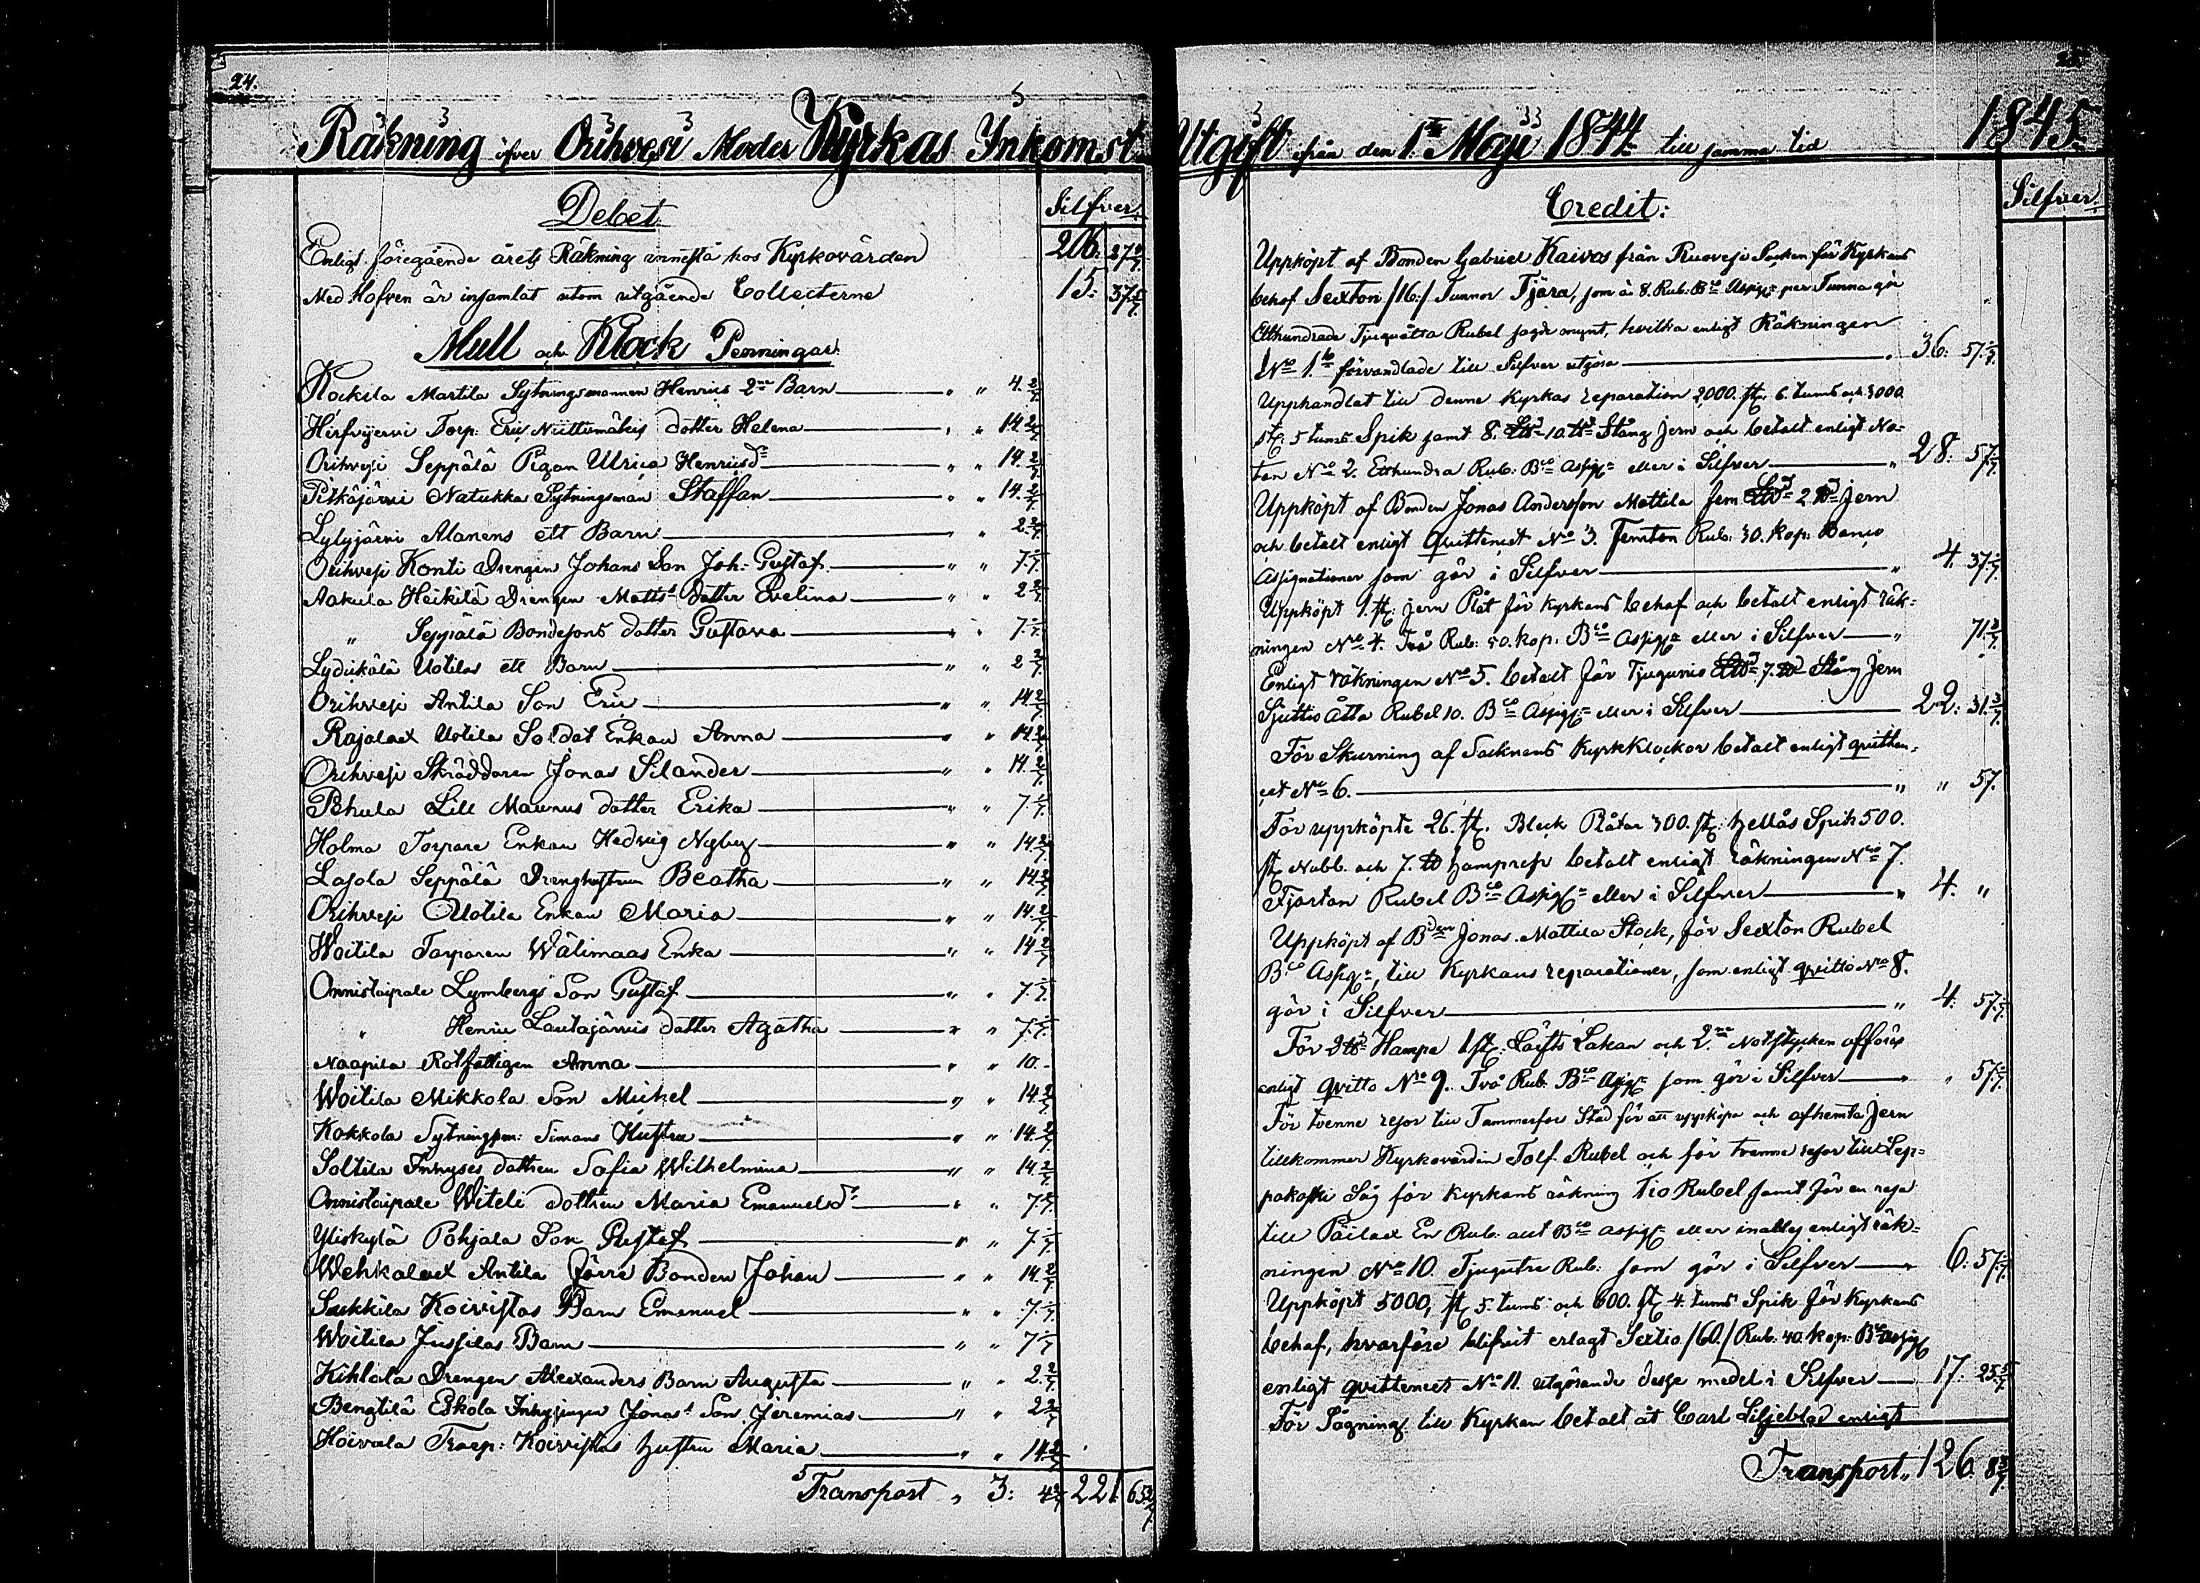 24.
Räkning öfver Orihvesi Moder Kyrkas Inkomst
Debet.
Silfver.
Enligt föregående årets Räkning innestå hos Kyrkovärden 206. 27 1/7.
Med Hafven är insamlat utom utgående Collecterne 15. 37 5/7.
Mull och Klock Penningar.
Kockila Martila Sytningsmannen Henrics 2ne Barn " " 4. 2/7
Hirsvijervi Torp: Eric Niittumäkis dotter Helena " " 14 2/7
Orihvesi Seppälä Pigan Ulrica Henricsdr " " 14. 2/7
Pitkäjärvi Natukka Sytningsman Staffan " " 14. 2/7
Lylyjärvi Alanens ett Barn " " 2 2/7
Orihvesi Konti Drengen Johans Son Joh: Gustaf " " 7. 1/7.
Aakula Heikilä Drengen Matts: dotter Evelina " " 2 2/7
" Seppälä Bondesons dotter Gustava " " 7. 1/7
Lydikälä Uotilas ett Barn " " 2 2/7
Orihvesi Antila Son Eric " " 14 2/7
Rajalax Uotila Soldat Enkan Anna " " 14 2/7
Orihvesi Skräddaren Jonas Silander " " 14. 2/7
Pehula Lill Maunus dotter Erika " " 7 1/7
Holma Torpare Enkan Hedvig Nyberg " " 14 2/7
Lasola Seppälä Drenghustrun Beatha " " 14 2/7
Orihvesi Uotila Enkan Maria " " 14 2/7
Woitila Torparen Wälimaas Enka " " 14 2/7
Onnistaipale Lymbergs Son Gustaf " " 7. 1/7
" Henric Lautajärvis dotter Agatha " " 7. 1/7
Naapila Rotfattigen Anna " " 10.
Woitila Mikkola Son Michel " " 14 2/7
Kokkola Sytningsm: Simons Hustru " " 14. 2/7
Soltila Inhyses dottren Sofia Wilhelmina " " 14 2/7
Onnistaipale Witeli dottren Maria Emanuelsdr " " 7. 1/7
Yliskylä Pohjala Son Gustaf " " 7 1/7
Wehkalax Antila Förre Bonden Johan " " 14 2/7
Sukkila Koivistos Barn Emanuel " " 7 1/7
Woitila Jussilas Barn " " 7 1/7
Kihlola Drengen Alexanders Barn Augusta " " 2. 2/7
Bengtilä Eskola Inhysingen Jonas: Son Jeremias " " 2 2/7
Hoivala Torp: Koivistos hustru Maria " " 14 2/7
Transport " 3: 4 2/7 221. 65
Utgift ifrån den 1 Maji 1844 till samma tid 1845.
Credit:
Silfver.
Uppköpt af Bonden Gabriel Kaivos från Ruovesi Socken för Kyrkans
behof Sexton /16:/ Tunnor Tjära, som à 8. Rub: Bco Assig: per Tunna gör
Etthundrade Tjuguåtta Rubel sagde mynt, hvilka enligt Räkningen
No 1. förvandlade till Silfver utgöra " 36: 57 1/7.
Upphandlat till denne Kyrkas reparation 2000. st. 6. tums och 3000
st. 5 tums Spik samt 8. L℔ 10. ℔ Stång Jern och betalt enligt No-
tan No 2. Etthundra Rub: Bco Assig: eller i Silfver " 28. 57 1/7.
Uppköpt af Bonden Jonas Andersson Mattila fem L℔ 2 ℔ Jern
och betalt enligt Qvittencet No 3. Femton Rub: 30. kop: Banco
Assignationer som gör i Silfver " 4. 37 1/7.
Uppköpt 1. st. jern Plåt för Kyrkans behof och betalt enligt räk-
ningen No 4. Två Rub: 50. kop: Bco Assig: eller i Silfver " 71 3/7.
Enligt räkningen No 5. betalt för Tjugunio L℔ 7. ℔ Stång Jern
Sjuttio åtta Rubel 10. Bco Assig: eller i Silfver 22. 31 3/7.
För Skurning af Socknens Kyrkklockor betalt enligt qvitten-
cet No 6. " " 57.
För uppköpte 26. st. Bleck Plåtar 300. st. hellås Spik 500.
st. Nubb. och 7. ℔ hampref betalt enligt räkningen No 7.
Fjorton Rubel Bco Assig: eller i Silfver " 4. "
Uppköpt af Bden Jonas Mattila Stock, för Sexton Rubel
Bco Assig:, till Kyrkans reparationer, som enligt qvitto No 8.
gör i Silfver " 4. 57 1/7.
För 2 ℔ Hampa 1 st. Läfts Lakan och 2ne Notstycken afförs
enligt Qvitto No 9. Två Rub: Bco Assig: som gör i Silfver " " 57 1/7.
För tvenne resor till Tammerfors Stad för att uppköpa och afhemta Jern
tillkommer Kyrkovärdin Tolf Rubel och för tvenne resor till Lep-
pakoski Såg för Kyrkans räkning Tio Rubel samt för en resa
till Päilax En Rub: allt Bco assig: eller inalles enligt räk-
ningen No 10. Tjugutre Rub: som gör i Silfver " 6: 57 1/7.
Uppköpt 5000, st. 5. tums och 600. st. 4. tums Spik för Kyrkans
behof, hvarföre blifvit erlagt Sextio /60./ Rub: 40. kop: Bco assig:
enligt qvittencet No 11. utgörande desse medel i Silfver 17. 25 5/7
För Sågning till Kyrkan betalt åt Carl Liljeblad enligt
Transport " 126. 8